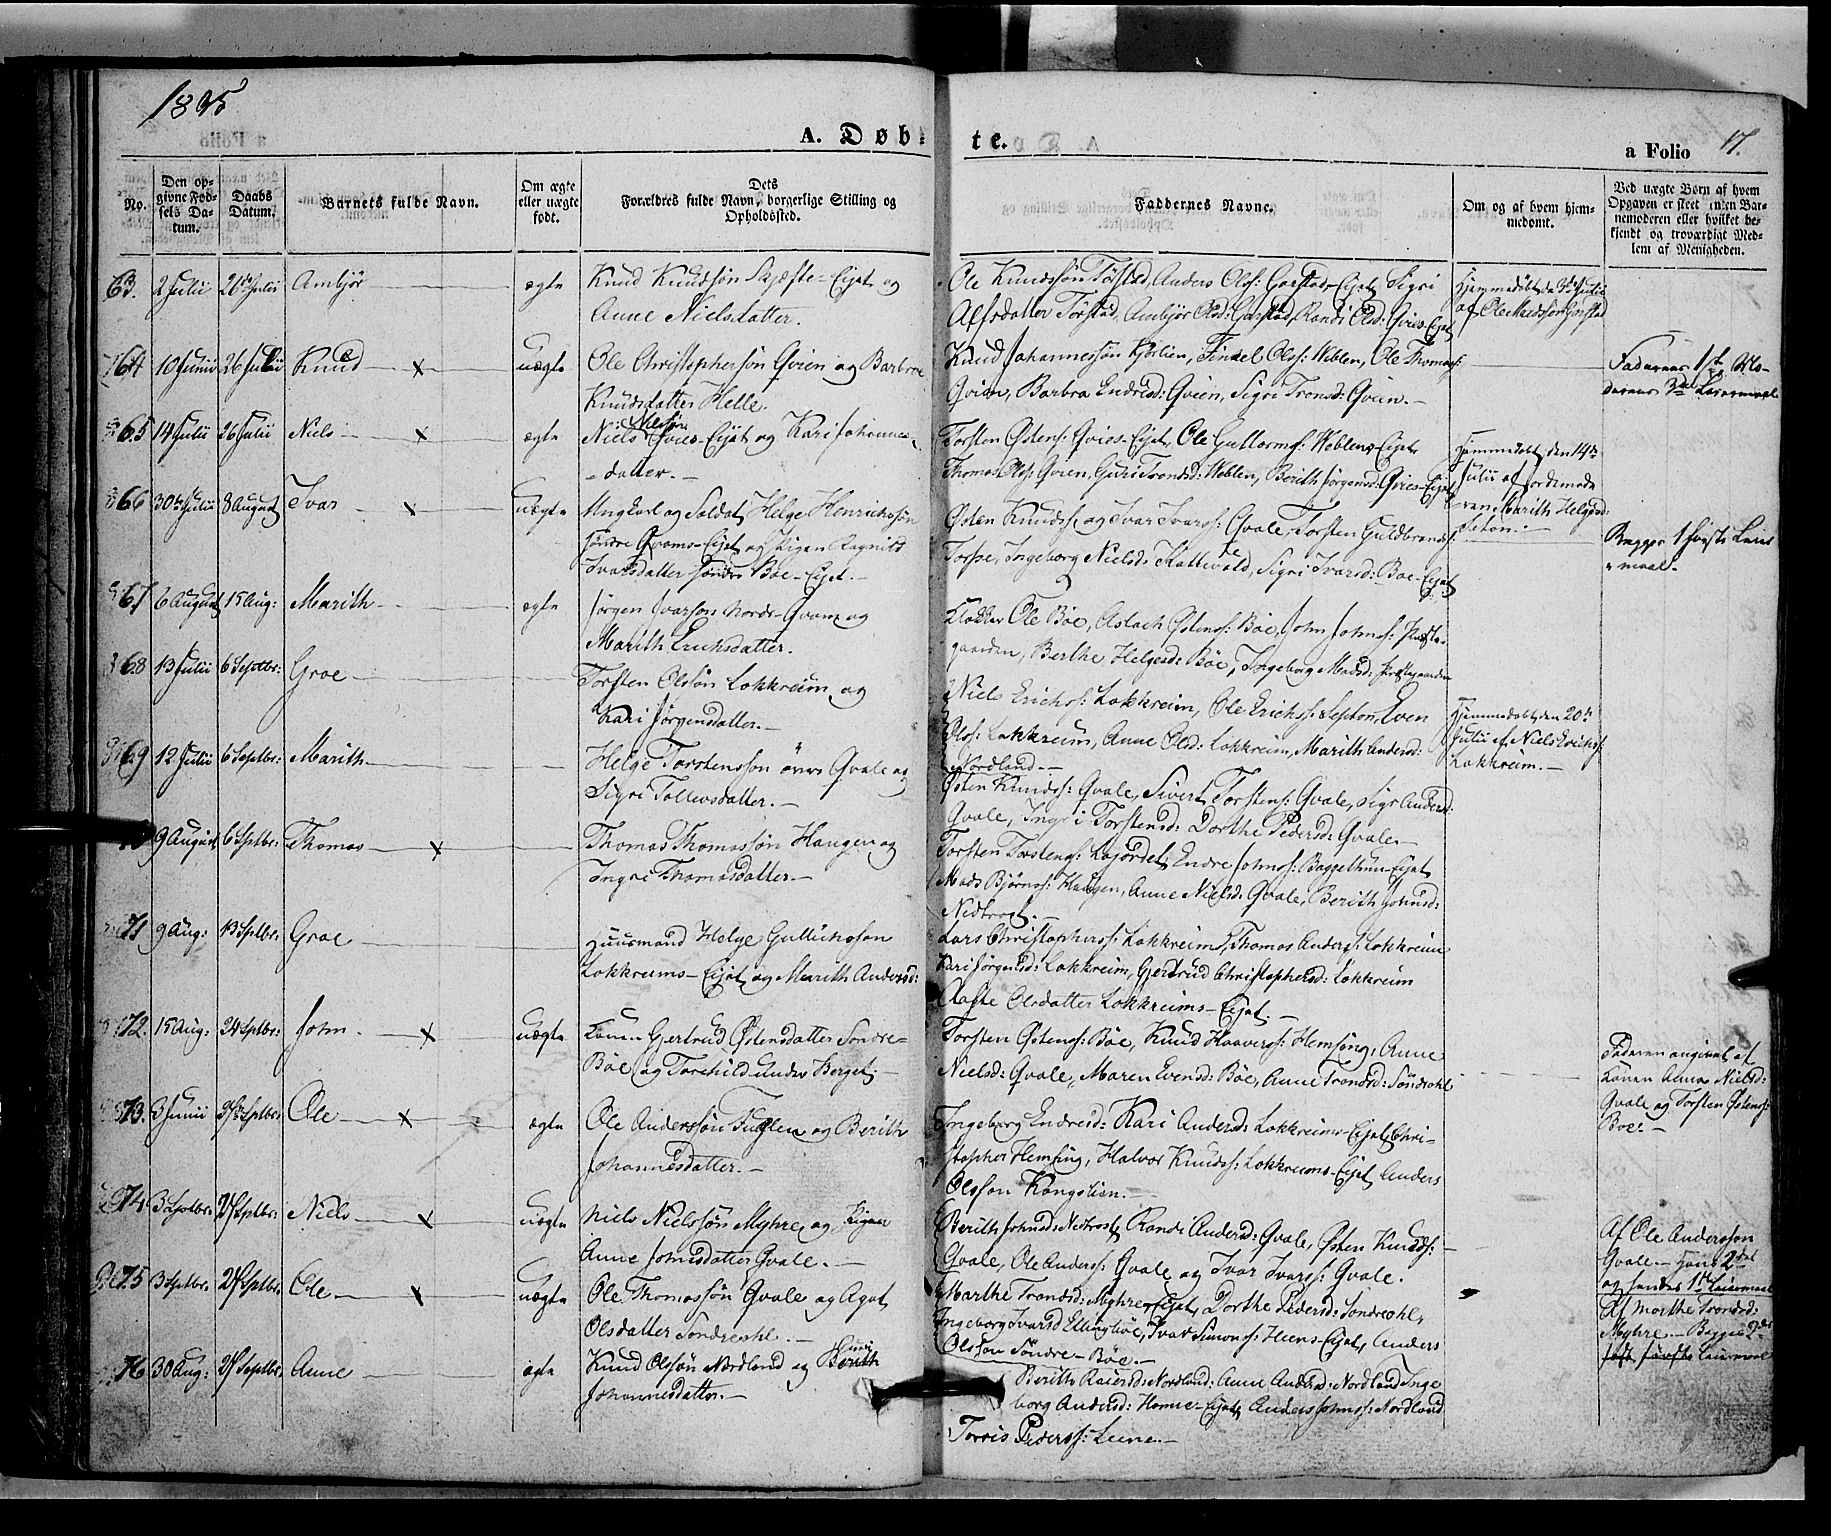 1835
A. Døb-
te.
a Folio 17.
No.
Den op-
givne Fød-
sels Da-
tum.
Daabs
Datum.
Barnets fulde Navn.
Om ægte
eller uægte
født.
Dets
Forældres fulde Navn, borgerlige Stilling og
Opholdssted.
Faddernes Navne.
Om og af hvem hjem-
medømt.
Ved uægte Børn af hvem
Opgaven er skeet, enten Bar-
nemoderen eller hvilket be-
kjendt og troværdigt Med-
lem af Menigheden.
63. 2 Julii 26de Julii Ambjør ægte Knud Knudsøn Skjefte-Eijet og
Anne Nielsdatter.
Ole Knudssøn Tørstad, Anders Olss: Garstad-Eijet, Sigri
Alfsdatter Tørstad, Ambjør Olsd: Garstad, Randi Olsd: Qvies-Eijet
Hjemmedøbt d. 9de Julii
af Ole Madssøn Garstad
64 10 Junii 26 Julii Knud x uægte Ole Christophersøn Qvien og Barbroe
Knudsdatter Helle.
Knud Johannessøn Kjørlien, Findel Olss: Weblen, Ole Thomass:
Qvien, Barbra Endresd: Qvien, Sigri Tronsd: Qvien.
Faderens 1ste Mo-
derens 3die Leiermaal
65 14 Julii 26 Julii Niels x ægte Niels Nielsøn Qvies-Eijet og Kari Johannes
datter.
Torsten Østens: Qvies-Eijet, Ole Guttorms: Weblens-Eijet
Thomas Olss: Qvien, Guri Tronsd: Weblen, Berith Jørgensd: Qvies-Eijet
Hjemmedøbt, den 14de
Julii af Jordemode
ren Marith Helgesd:
66 30te Julii 8 August Ivar x uægte Ungkarl og Soldat Helge Henrichssøn
søndre Qvams-Eijet og Pigen Ragnild
Ivarsdatter søndre Bøe-Eijet.
Østen Knudss: og Ivar Ivarss: Qvale, Torsten Guldbrands:
Torpe, Ingeborg Nielsd: Kattevold, Sigri Ivarsd: Bøe-Eijet
Begges 1 første Leier
maal.
67 6 August 15 Aug: Marith ægte Jørgen Ivarsøn Nordr-Qvam og
Marith Erichsdatter.
Klokker Ole Bøe, Aslach Østens: Bøe, John Johns: Præste-
gaarden, Berthe Helgesd: Bøe, Ingeborg Madsd: Præstegaarden
68 13 Julii 6 Septbr: Groe Torsten Olssøn Lokkreim og
Kari Jørgensdatter.
Niel Erichss: Lokkreim, Ole Erichss: Septon, Even
Olss: Lokkreim, Anne Olsd: Lokkreim, Marith Andersd:
Nordland.
Hjemmedøbt den 20de
Julii af Niels Erichss:
Lokkreim.
69 12 Julii 6 Septbr: Marith Helge Torstenssøn övre Qvale og
Sigri Tollevsdatter.
Østen Knudss: Qvale, Sivert Torstens: Qvale, Sigr Andersd:
Qvale, Ingri Torstensd: Dorthe Pedersd: Qvale.
9 August 6 Sptbr: Thomas x Thomas Thomassøn Haugen og
Ingri Thomasdatter.
Torsten Torstens: Lajordet, Endre Johns: Baggethun-Eijet
Mads Bjørnss: Haugen, Anne Nielsd: Qvale, Berith Johnsd:
Nedtrost.
71 9 Aug: 13 Sptbr: Groe Huusmand Helge Gullichssøn
Lokkreims-Eijet og Marith Andersd:
Lars Christopherss: Lokkreim, Thomas Anderss: Lokkreim
Kari Jørgensd: Lokkreim, Gjertrud Christophersd: Lokkreim
Aaste Olsdatter Lokkreims-Eijet.
72. 15 Aug: 24 Sptbr: John. x uægte Konen Gjertrud Østensdatter Søndre-
Bøe og Torchild Endres Berget.
Torsten Østens: Bøe, Knud Haavers: Hemsing, Anne
Nielsd: Qvale, Maren Evensd: Bøe, Anne Tronsd: Søndrohl
Faderen angivet af
Konen Anna Nielsd:
Qvale og Torsten Østens:
Bøe.
73. 3 Junii Sptbr: Ole x ægte Ole Anderssøn Fuglen og Berith
Johannesdatter.
Ingeborg Endresd: Kari Andersd: Lokkreims-Eijet, Chri-
stopher Hemsing, Halvor Knudss: Lokkreims-Eijet Anders
Olssøn Kongslien.
74 3 Sptbr: 27 Sptbr: Niels x uægte Niels Nielssøn Myhre og Pigen
Anne Johnsdatter Qvale.
Berith Johnsd: Nedtrost, Randi Andersd: Qvale, Østen Knuds:
Qvale, Ole Anderss: Qvale og Ivar Ivarss: Qvale.
Af Ole Anderssøn
Qvale. Hans 2det
og hendes 1ste Leiermaal
75 3 Sptbr: 27 Sptbr: Ole x uægte Ole Thomassøn Qvale og Agat
Olsdatter Søndreohl.
Marthe Tronsd: Myhre-Eijet, Dorthe Pedersd: Søndreohl,
Ingeborg Ivarsd Ellingbøe, Ivar Simons: Heens-Eijet, Anders
Olssøn Søndre-Bøe.
Af Marthe Tronsd:
Myhre. Begges 2det
første Leiermaal
76 30 Aug: 27 Sptbr: Anne ægte Knud Olssøn Nordland og Berith
Johannesdatter.
Berith Reiersd: Nordland: Anne Andersd: Nordland Inge
borg Andersd: Homes-Eijet, Anders Johnss: Nordland
Torris Pederss: Leine.